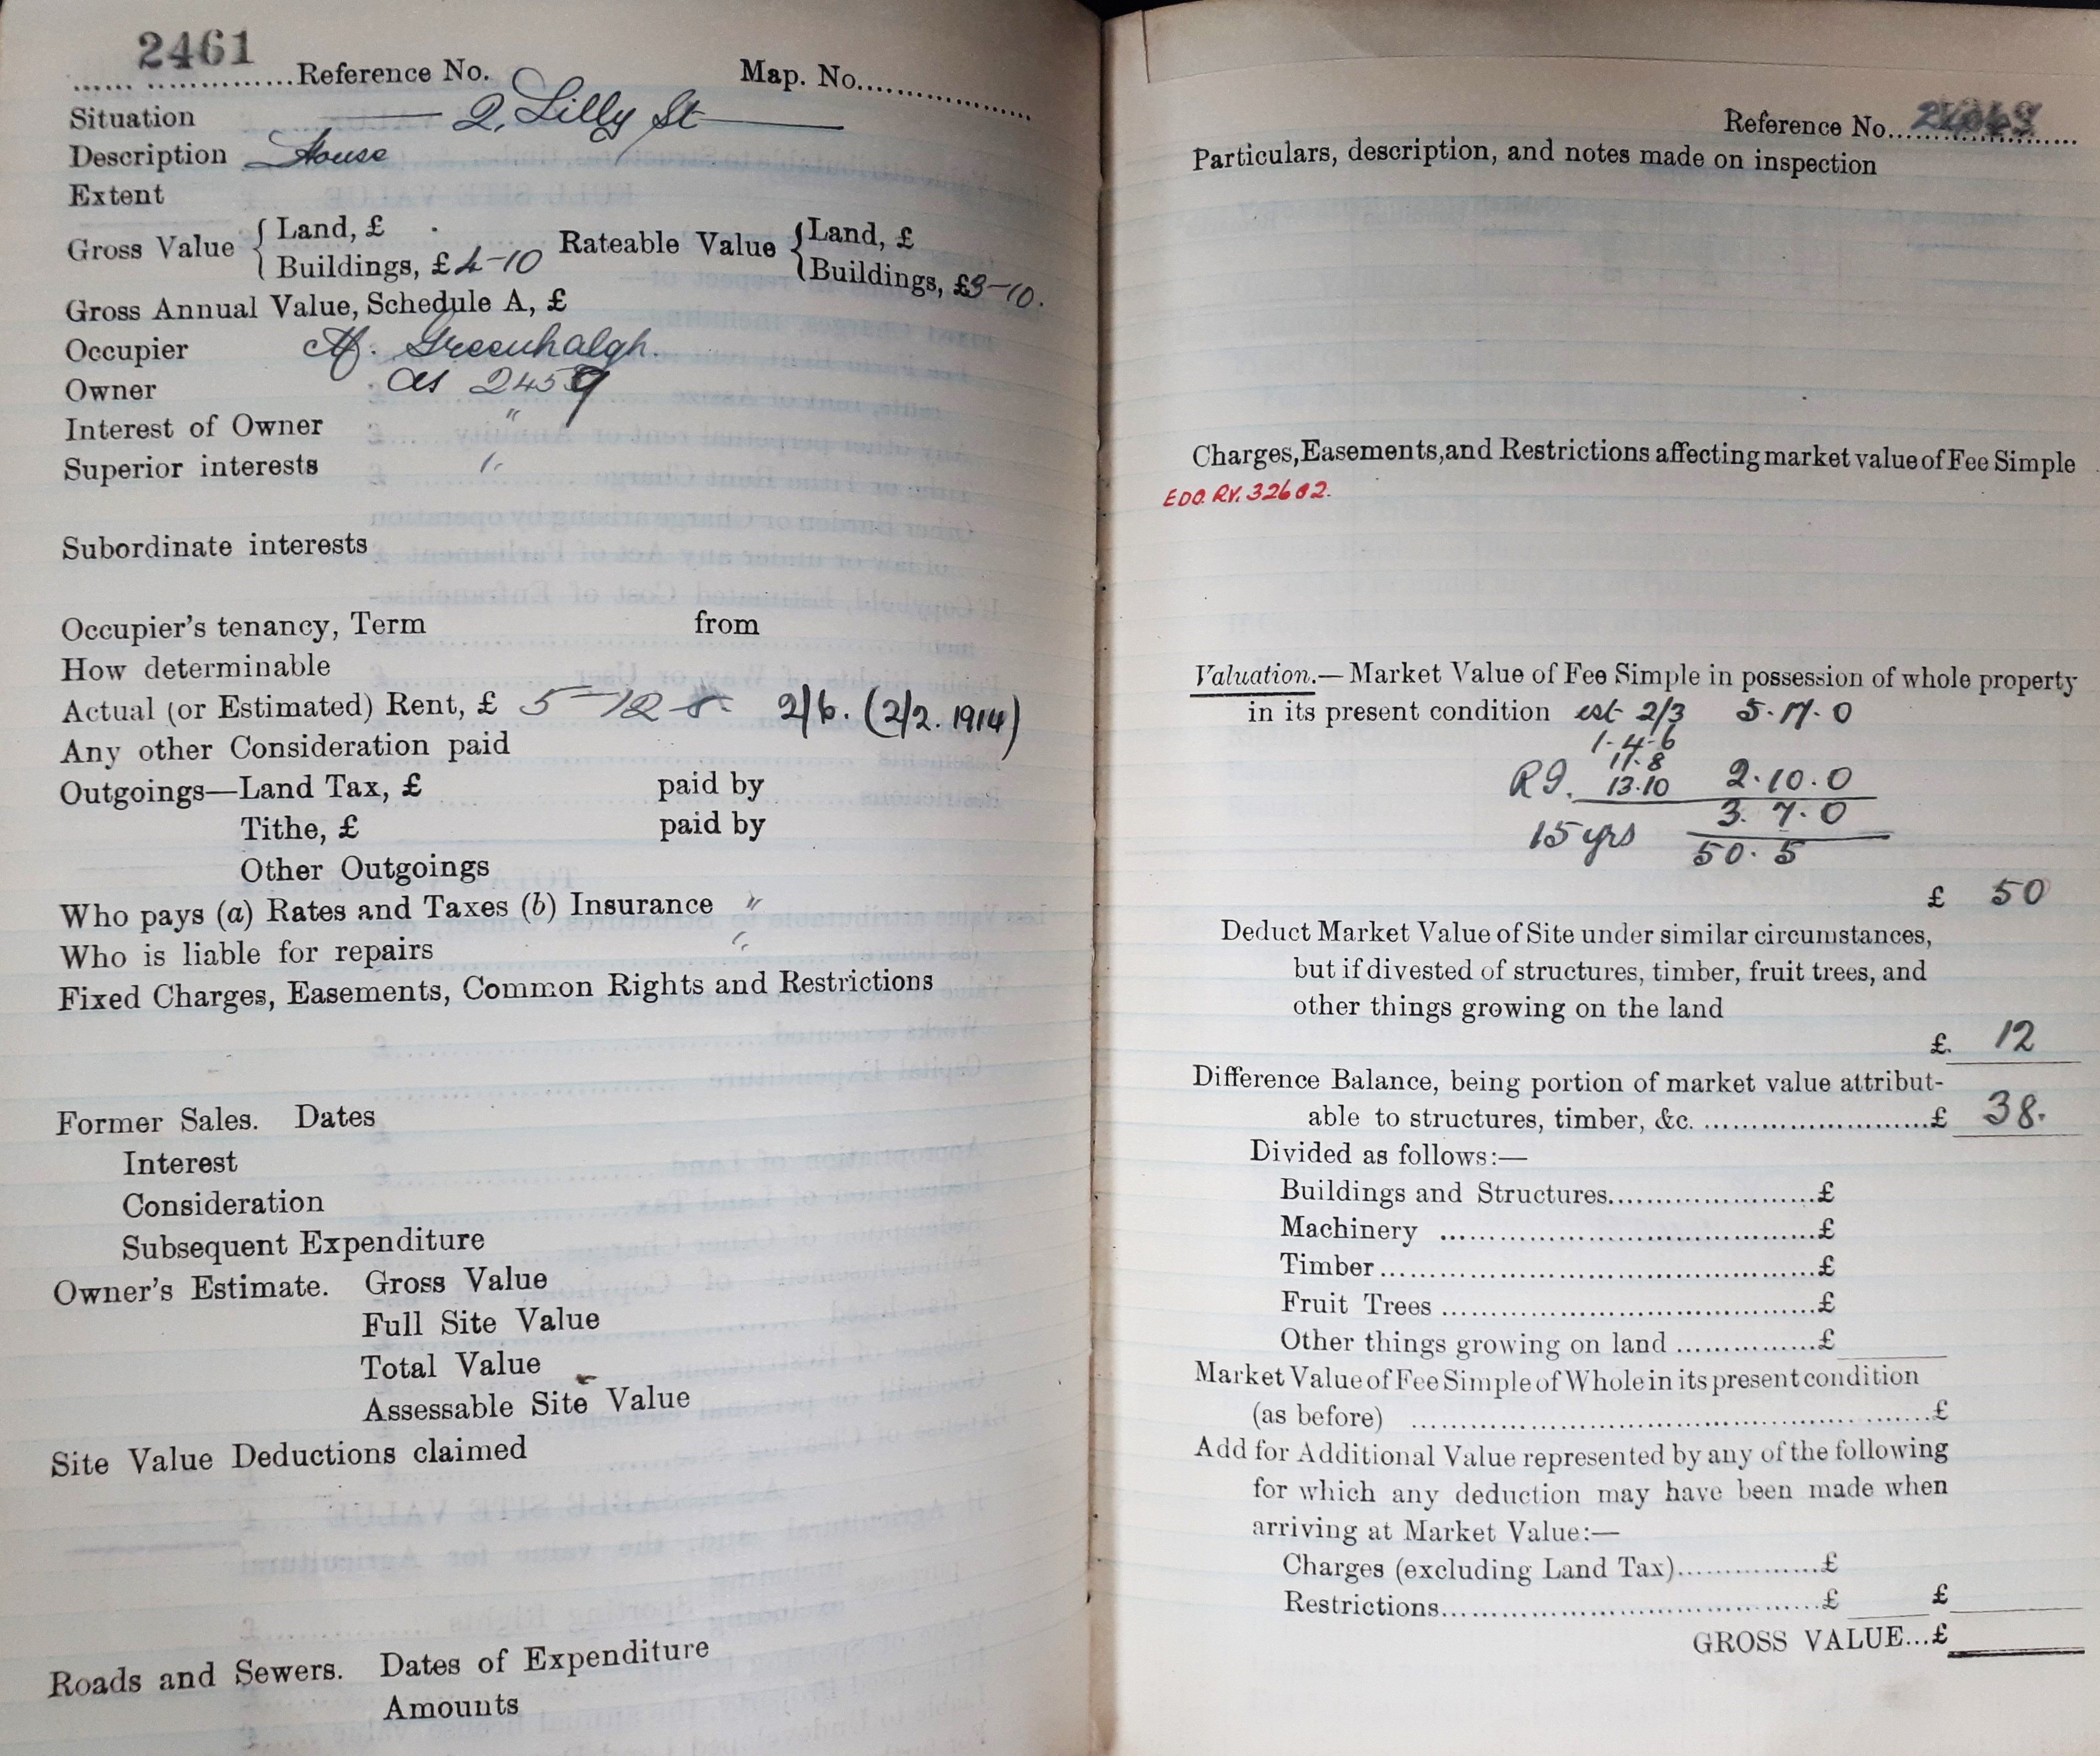 2461
...... ...............Reference No. Map. No...................
Situation 2, Lilly St
Description House
Extent
Gross Value { Land, £ Rateable Value { Land, £
Buildings, £ 4-10 Buildings, £3-10.
Gross Annual Value, Schedule A, £
Occupier Greenhalgh.
Owner as 2459
Interest of Owner "
Superior interests "
Subordinate interests
Occupier's tenancy, Term from
How determinable
Actual (or Estimated) Rent, £ 5-12 2/6. (2/2. 1914)
Any other Consideration paid
Outgoings—Land Tax, £ paid by
Tithe, £ paid by
Other Outgoings
Who pays (a) Rates and Taxes (b) Insurance "
Who is liable for repairs "
Fixed Charges, Easements, Common Rights and Restrictions
Former Sales. Dates
Interest
Consideration
Subsequent Expenditure
Owner's Estimate. Gross Value
Full Site Value
Total Value
Assessable Site Value
Site Value Deductions claimed
Roads and Sewers. Dates of Expenditure
Amounts
Reference No.....................
Particulars, description, and notes made on inspection
Charges, Easements, and Restrictions affecting market value of Fee Simple
EDO. RV. 32602.
Valuation.—Market Value of Fee Simple in possession of whole property
in its present condition est 2/3 5.17.0
1-4-6
11.8
R9. 13.10 2.10.0
3. 7.0
15 yrs 50. 5
£ 50
Deduct Market Value of Site under similar circumstances,
but if divested of structures, timber, fruit trees, and
other things growing on the land
£. 12
Difference Balance, being portion of market value attribut-
able to structures, timber, &c. ........................£ 38.
Divided as follows:—
Buildings and Structures.......................£
Machinery .........................................£
Timber................................................£
Fruit Trees .........................................£
Other things growing on land ...............£
Market Value of Fee Simple of Whole in its present condition
(as before) .........................................................£
Add for Additional Value represented by any of the following
for which any deduction may have been made when
arriving at Market Value:—
Charges (excluding Land Tax)...............£
Restrictions.........................................£ £
GROSS VALUE...£